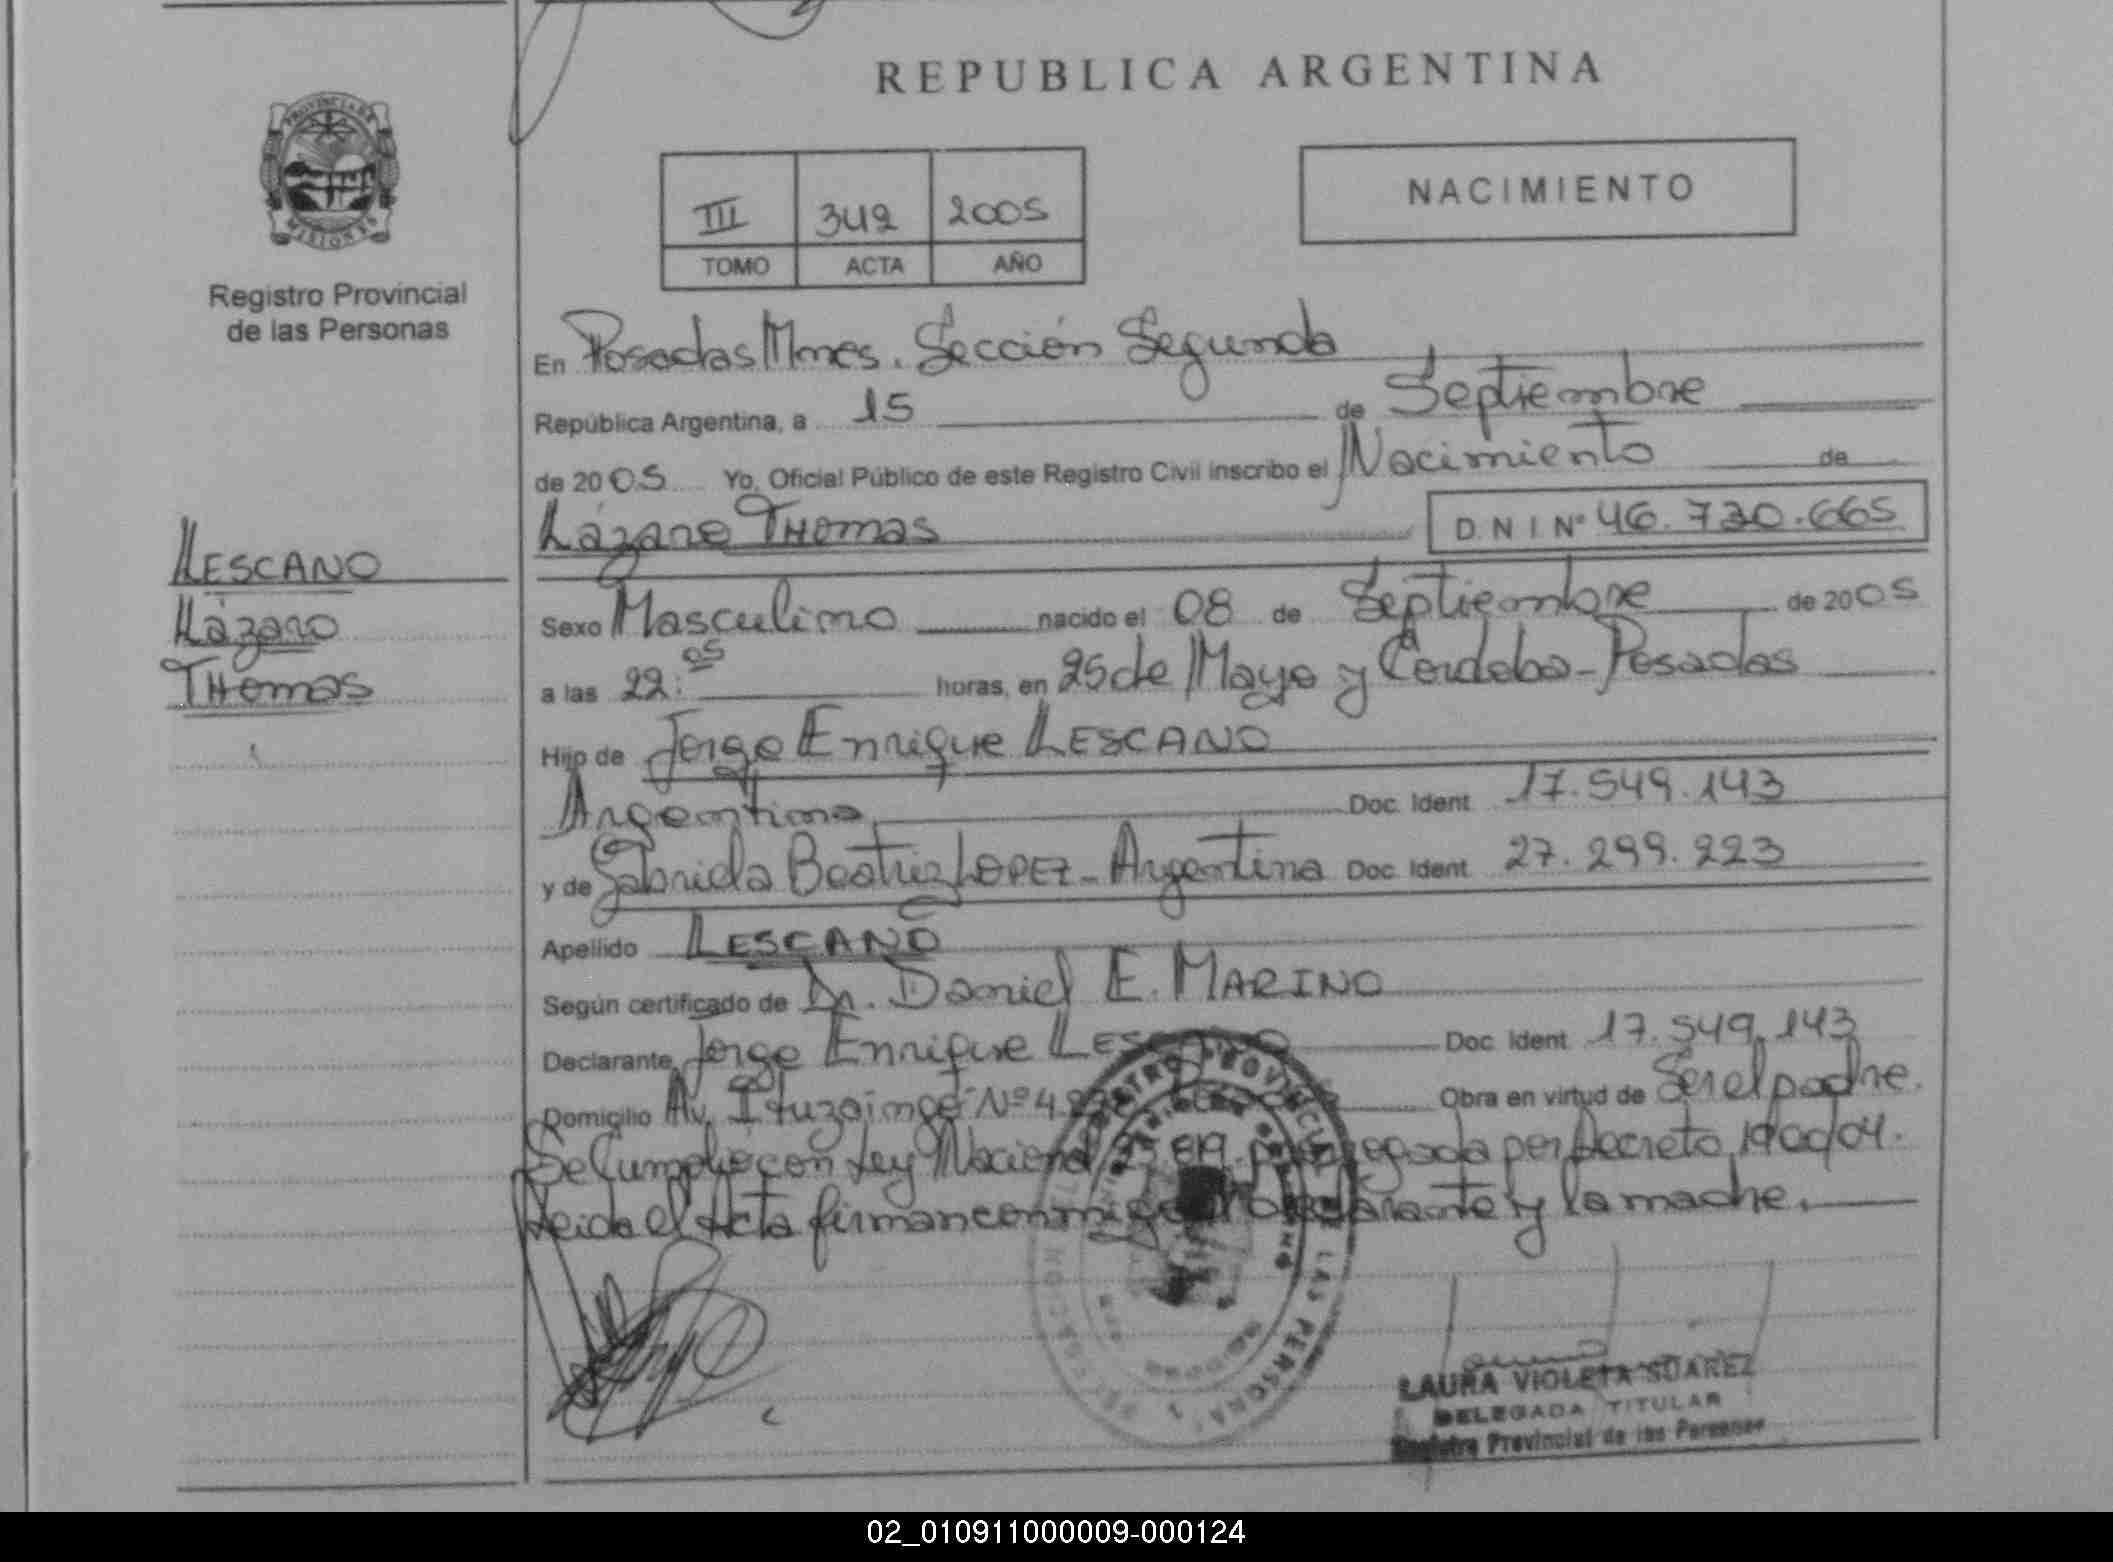 REPUBLICA ARGENTINA
PROVINCIA DE
MISIONES
Registro Provincial
de las Personas
NACIMIENTO
III 342 2005
TOMO ACTA AÑO
En Posadas Mnes. Sección Segunda
República Argentina, a 15 de Septiembre
de 2005 Yo, Oficial Público de este Registro Civil inscribo el Nacimiento de
Lázaro THomas D N I Nº 46.730.665
LESCANO
Lázaro
THomas
Sexo Masculino nacido el 08 de Septiembre de 2005
a las 22:05 horas, en 25 de Mayo y Cordoba - Posadas
Hijo de Jorge Enrique LESCANO
Argentino Doc. Ident. 17.549.143
y de Gabriela Beatriz LOPEZ - Argentina Doc. Ident. 27.299.223
Apellido LESCANO
Según certificado de Dr. Daniel E. MARINO
Declarante Jorge Enrique LESCANO Doc. Ident. 17.549.143
Domicilio Av. Ituzaingó Nº Obra en virtud de Ser el padre.
Se Cumplió con Ley Nacional 25.819. prorrogada por Decreto 1900/04.
Leida el Acta firman conmigo el declarante y la madre.
LAURA VIOLETA SUAREZ
DELEGADA TITULAR
Registro Provincial de las Personas
02_010911000009-000124